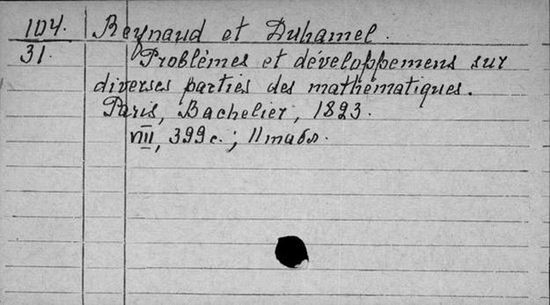 104. Reynaud et Duhamel.
31. Problèmes et développemens sur
diverses parties des mathématiques.
Paris, Bachelier, 1823.
VIII, 399 с.; 11 табл.